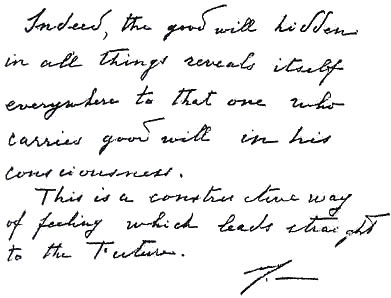 Indeed, the good will hidden
in all things reveals itself
everywhere to that one who
carries good will in his
consciousness.
This is a constructive way
of feeling which leads straight
to the Future.